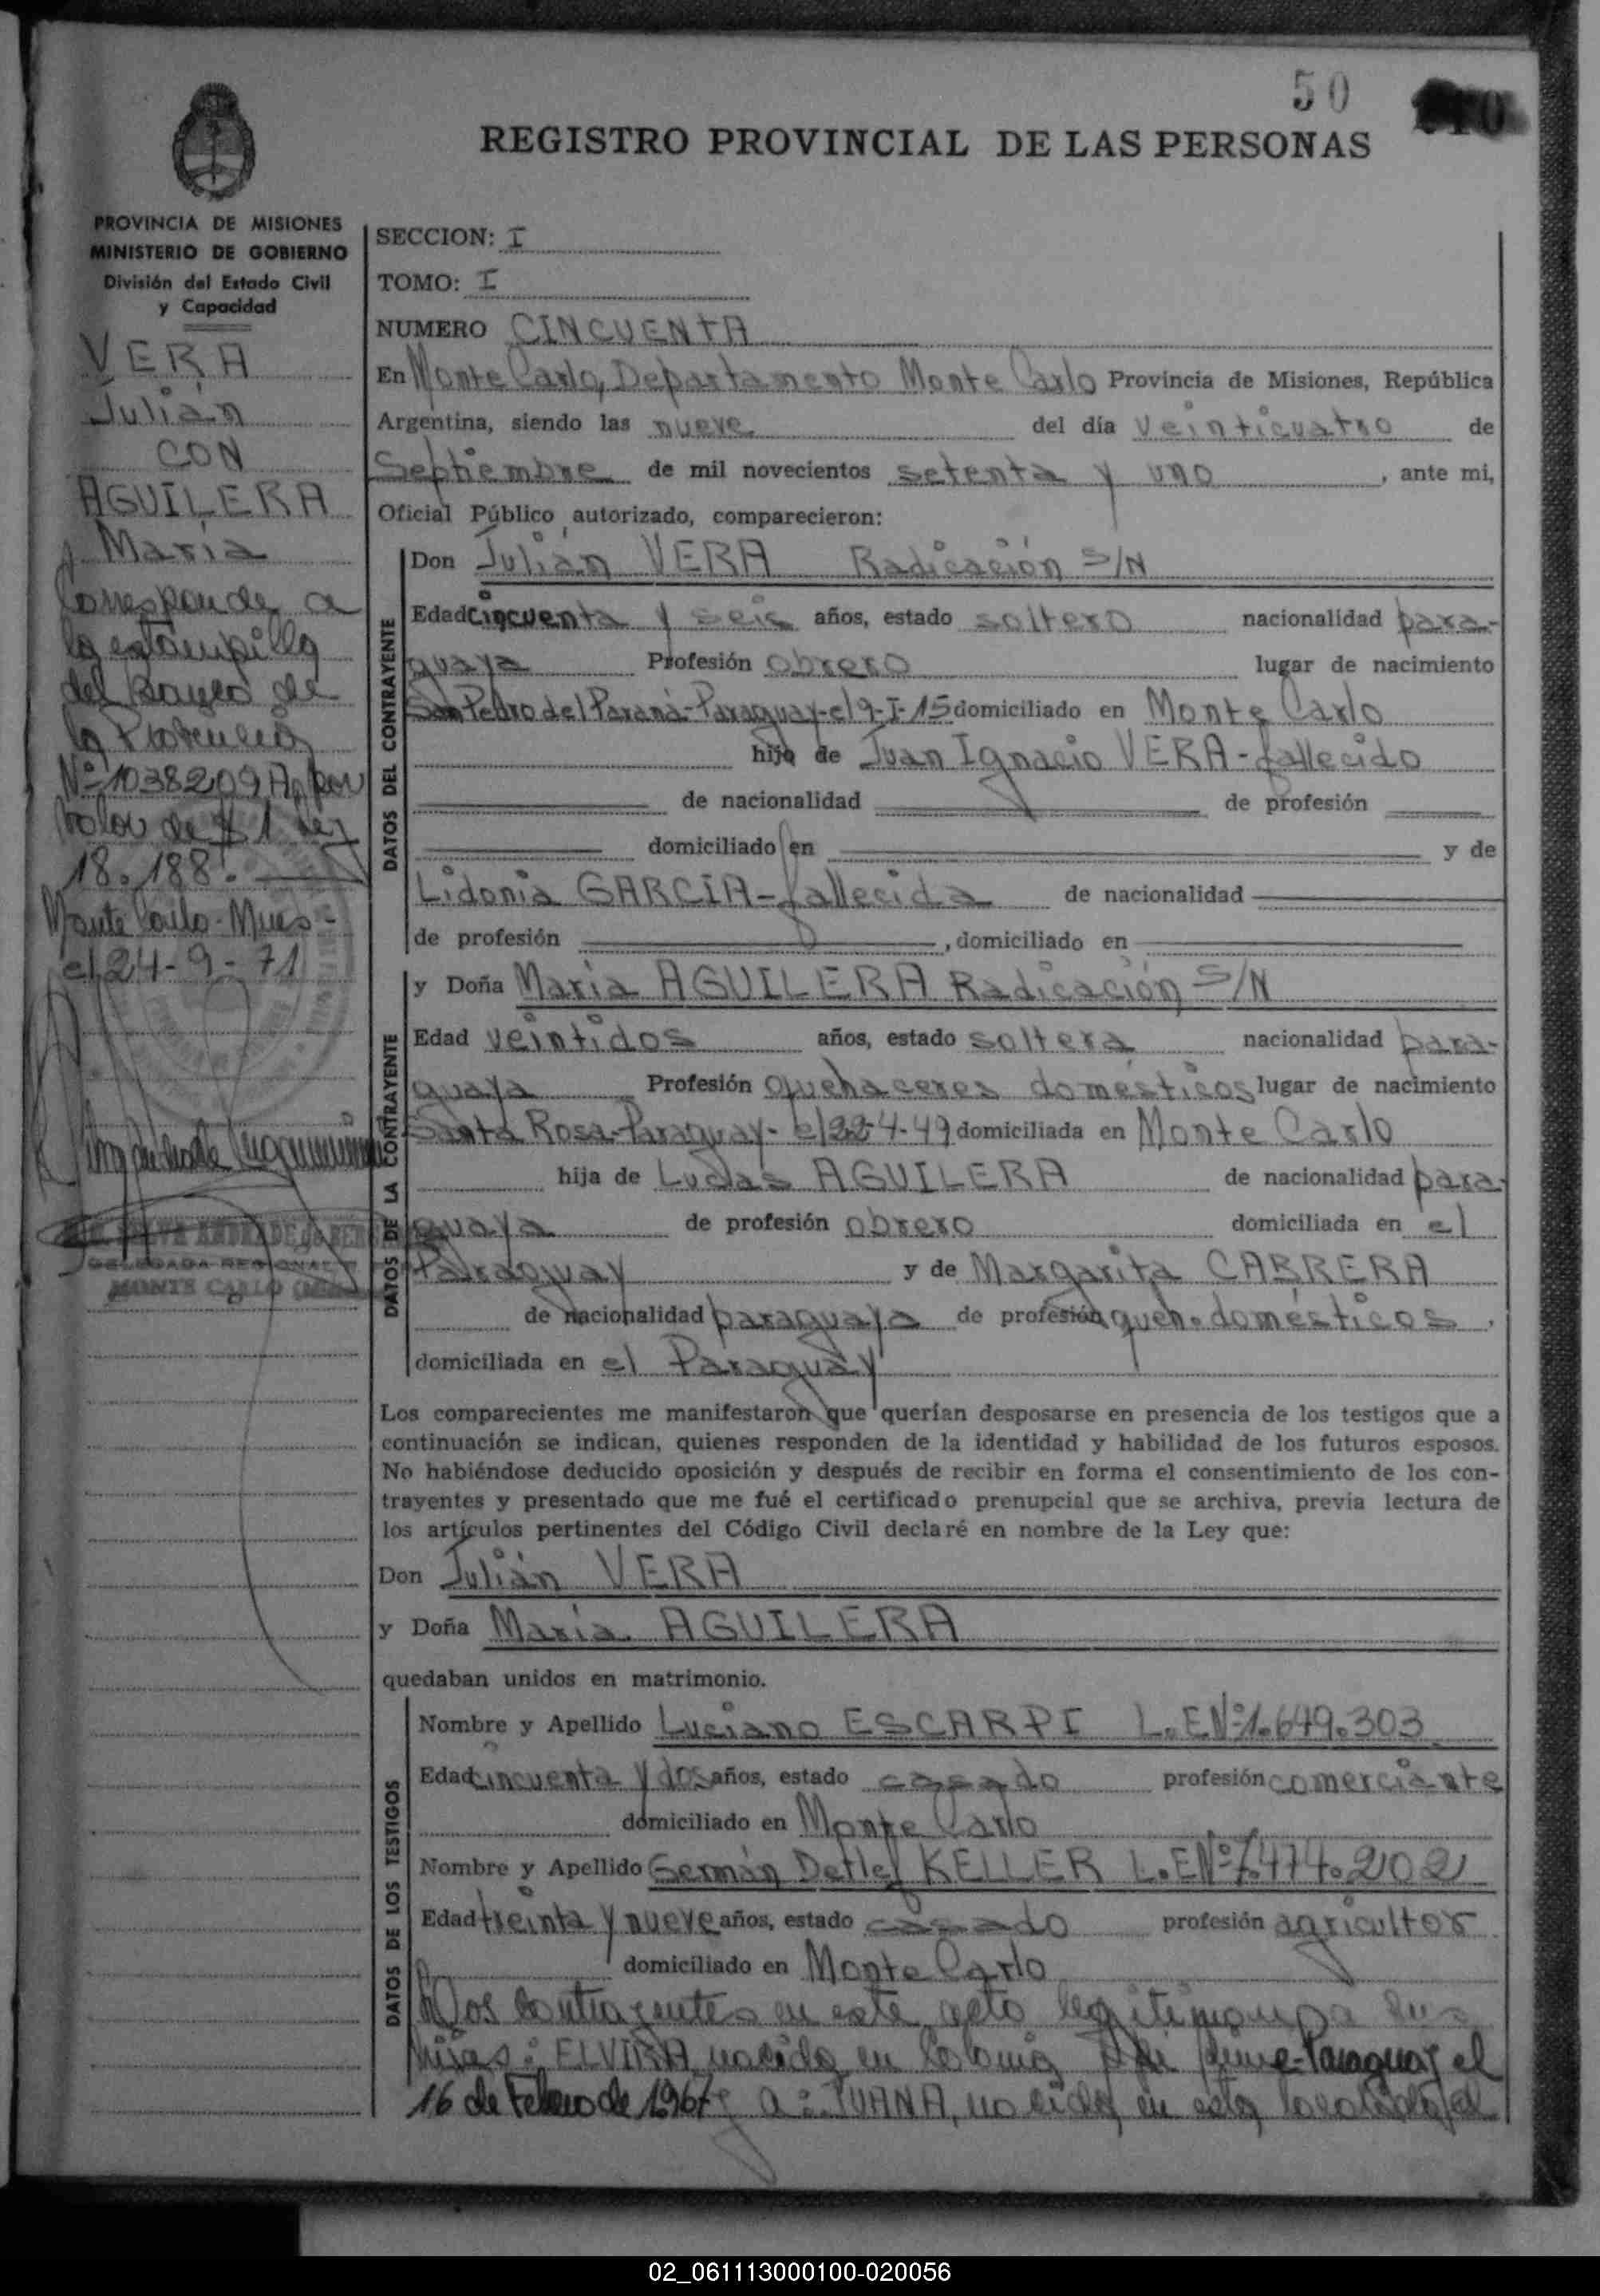 50
REGISTRO PROVINCIAL DE LAS PERSONAS
PROVINCIA DE MISIONES
MINISTERIO DE GOBIERNO
División del Estado Civil
y Capacidad
VERA
Julián
CON
AGUILERA
María
Corresponde a
la estampilla
del Banco de
la Provincia
Nº 1038209 A, por
valor de $ 1 ley
18.188.
Monte Carlo - Mnes -
el 24-9-71
DELEGADA REGIONAL
MONTE CARLO
SECCION: I
TOMO: I
NUMERO CINCUENTA
En Monte Carlo, Departamento Monte Carlo Provincia de Misiones, República
Argentina, siendo las nueve del día veinticuatro de
Septiembre de mil novecientos setenta y uno, ante mi,
Oficial Público autorizado, comparecieron:
DATOS DEL CONTRAYENTE
Don Julián VERA Radicación S/N
Edad cincuenta y seis años, estado soltero nacionalidad para-
guaya Profesión obrero lugar de nacimiento
San Pedro del Paraná-Paraguay-el 9-I-15 domiciliado en Monte Carlo
hijo de Juan Ignacio VERA-fallecido
de nacionalidad de profesión
domiciliado en y de
Lidonia GARCIA-fallecida de nacionalidad
de profesión , domiciliado en
DATOS DE LA CONTRAYENTE
y Doña María AGUILERA Radicación S/N
Edad veintidos años, estado soltera nacionalidad para-
guaya Profesión quehaceres domésticos lugar de nacimiento
Santa Rosa-Paraguay- el 22-4-49 domiciliada en Monte Carlo
hija de Lucas AGUILERA de nacionalidad para-
guaya de profesión obrero domiciliada en el
Paraguay y de Margarita CABRERA
de nacionalidad paraguaya de profesión queh. domésticos,
domiciliada en el Paraguay
Los comparecientes me manifestaron que querían desposarse en presencia de los testigos que a
continuación se indican, quienes responden de la identidad y habilidad de los futuros esposos.
No habiéndose deducido oposición y después de recibir en forma el consentimiento de los con-
trayentes y presentado que me fué el certificado prenupcial que se archiva, previa lectura de
los artículos pertinentes del Código Civil declaré en nombre de la Ley que:
Don Julián VERA
y Doña María AGUILERA
quedaban unidos en matrimonio.
DATOS DE LOS TESTIGOS
Nombre y Apellido Luciano ESCARPI L.E Nº 1.649.303
Edad cincuenta y dos años, estado casado profesión comerciante
domiciliado en Monte Carlo
Nombre y Apellido Germán Detlef KELLER L.E Nº 7.474.202
Edad treinta y nueve años, estado casado profesión agricultor
domiciliado en Monte Carlo
Los contrayentes en este acto legitiman a sus
hijas: ELVIRA, nacida en Colonia Paraguay el
16 de Febrero de 1967 y a: JUANA, nacida en esta localidad el
02_061113000100-020056